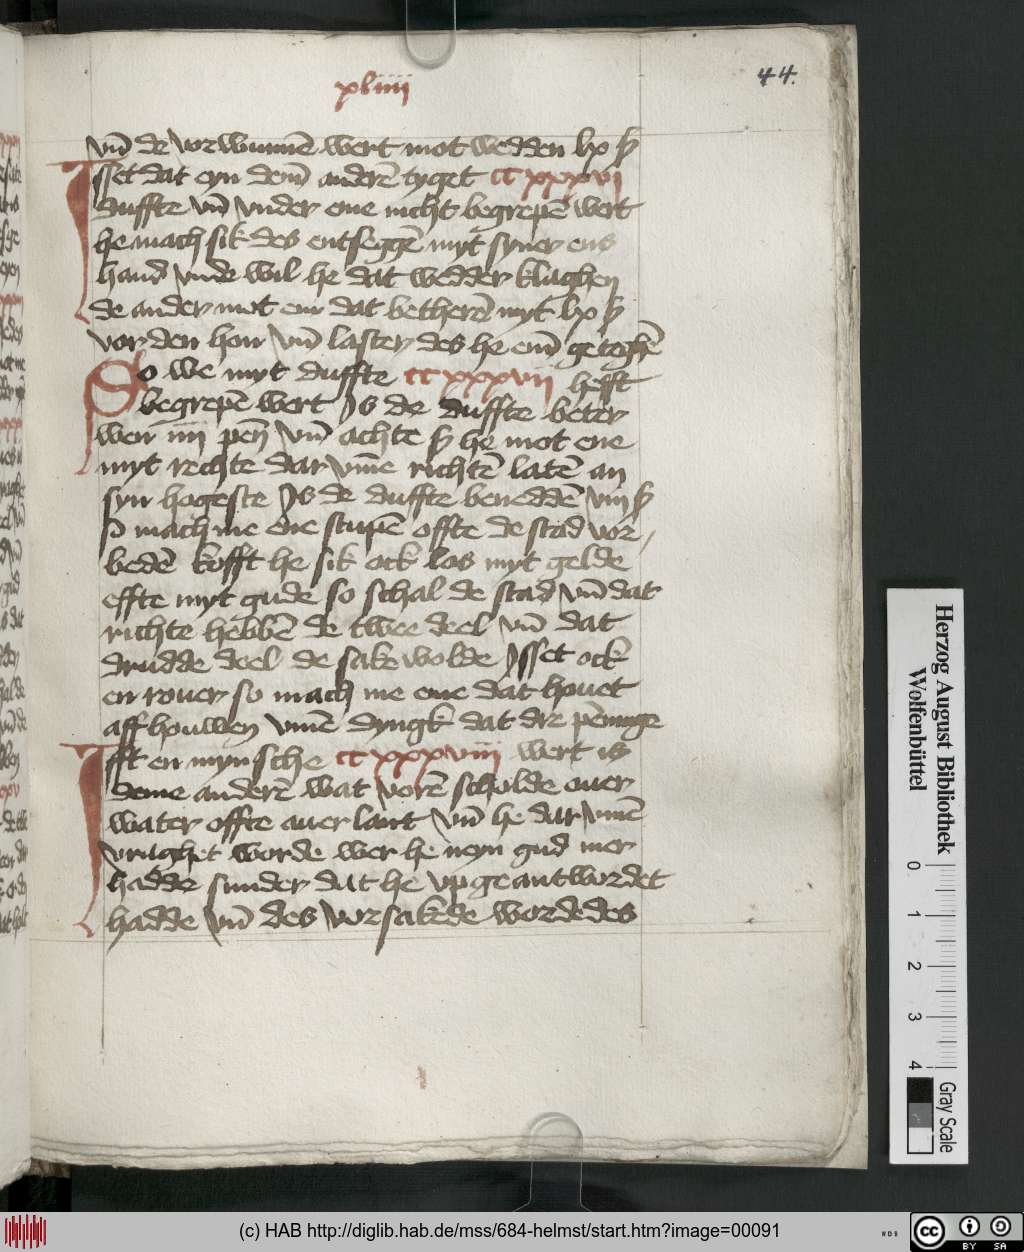 xliiii
44.
vn̄ de vorwunnē wert mot wedden lx ß
Isset dat eyn dem̄ anderē tyget cc xxxvi
duffte vn̄ vnder eme nicht begrepē wert
he mach sik des entseggē myt syner ens
hand vnde wil he dat wedder klaghen
de ander mot em dat betherē myt lx ß
vor den hon vn̄ laster des he em̄ geteghē
So we myt duffte cc xxxvii hefft
begrepē wert Is de duffte beter
wen iiii pen̄ vn̄ achte ß he mot ene
myt rechte dar vm̄e richtē latē an
syn hogeste Is de duffte beneddē viii ß
so mach me ene stupē offte de stad vor
bedē kofft he sik ock los myt gelde
effte myt gude so schal de stad vn̄ dat
richte hebbē de twee deel vn̄ dat
drudde deel de sakewolde Isset ock
en rouer so mach me eme dat houet
aff houwen vm̄e dyngk dat dre pēninge
Ifft en mynsche cc xxxviii wert is
deme anderē wat vorē scholde ouer
water offte auer lant vn̄ he dar vmē
vraghet worde wer he neyn gud mer
hadde sunder dat he vp geantwordet
hadde vn̄ des vorsakede worde des
Herzog August Bibliothek
Wolfenbüttel
0 1 2 3 4
Gray Scale
(c) HAB http://diglib.hab.de/mss/684-helmst/start.htm?image=00091
WDB
cc BY SA